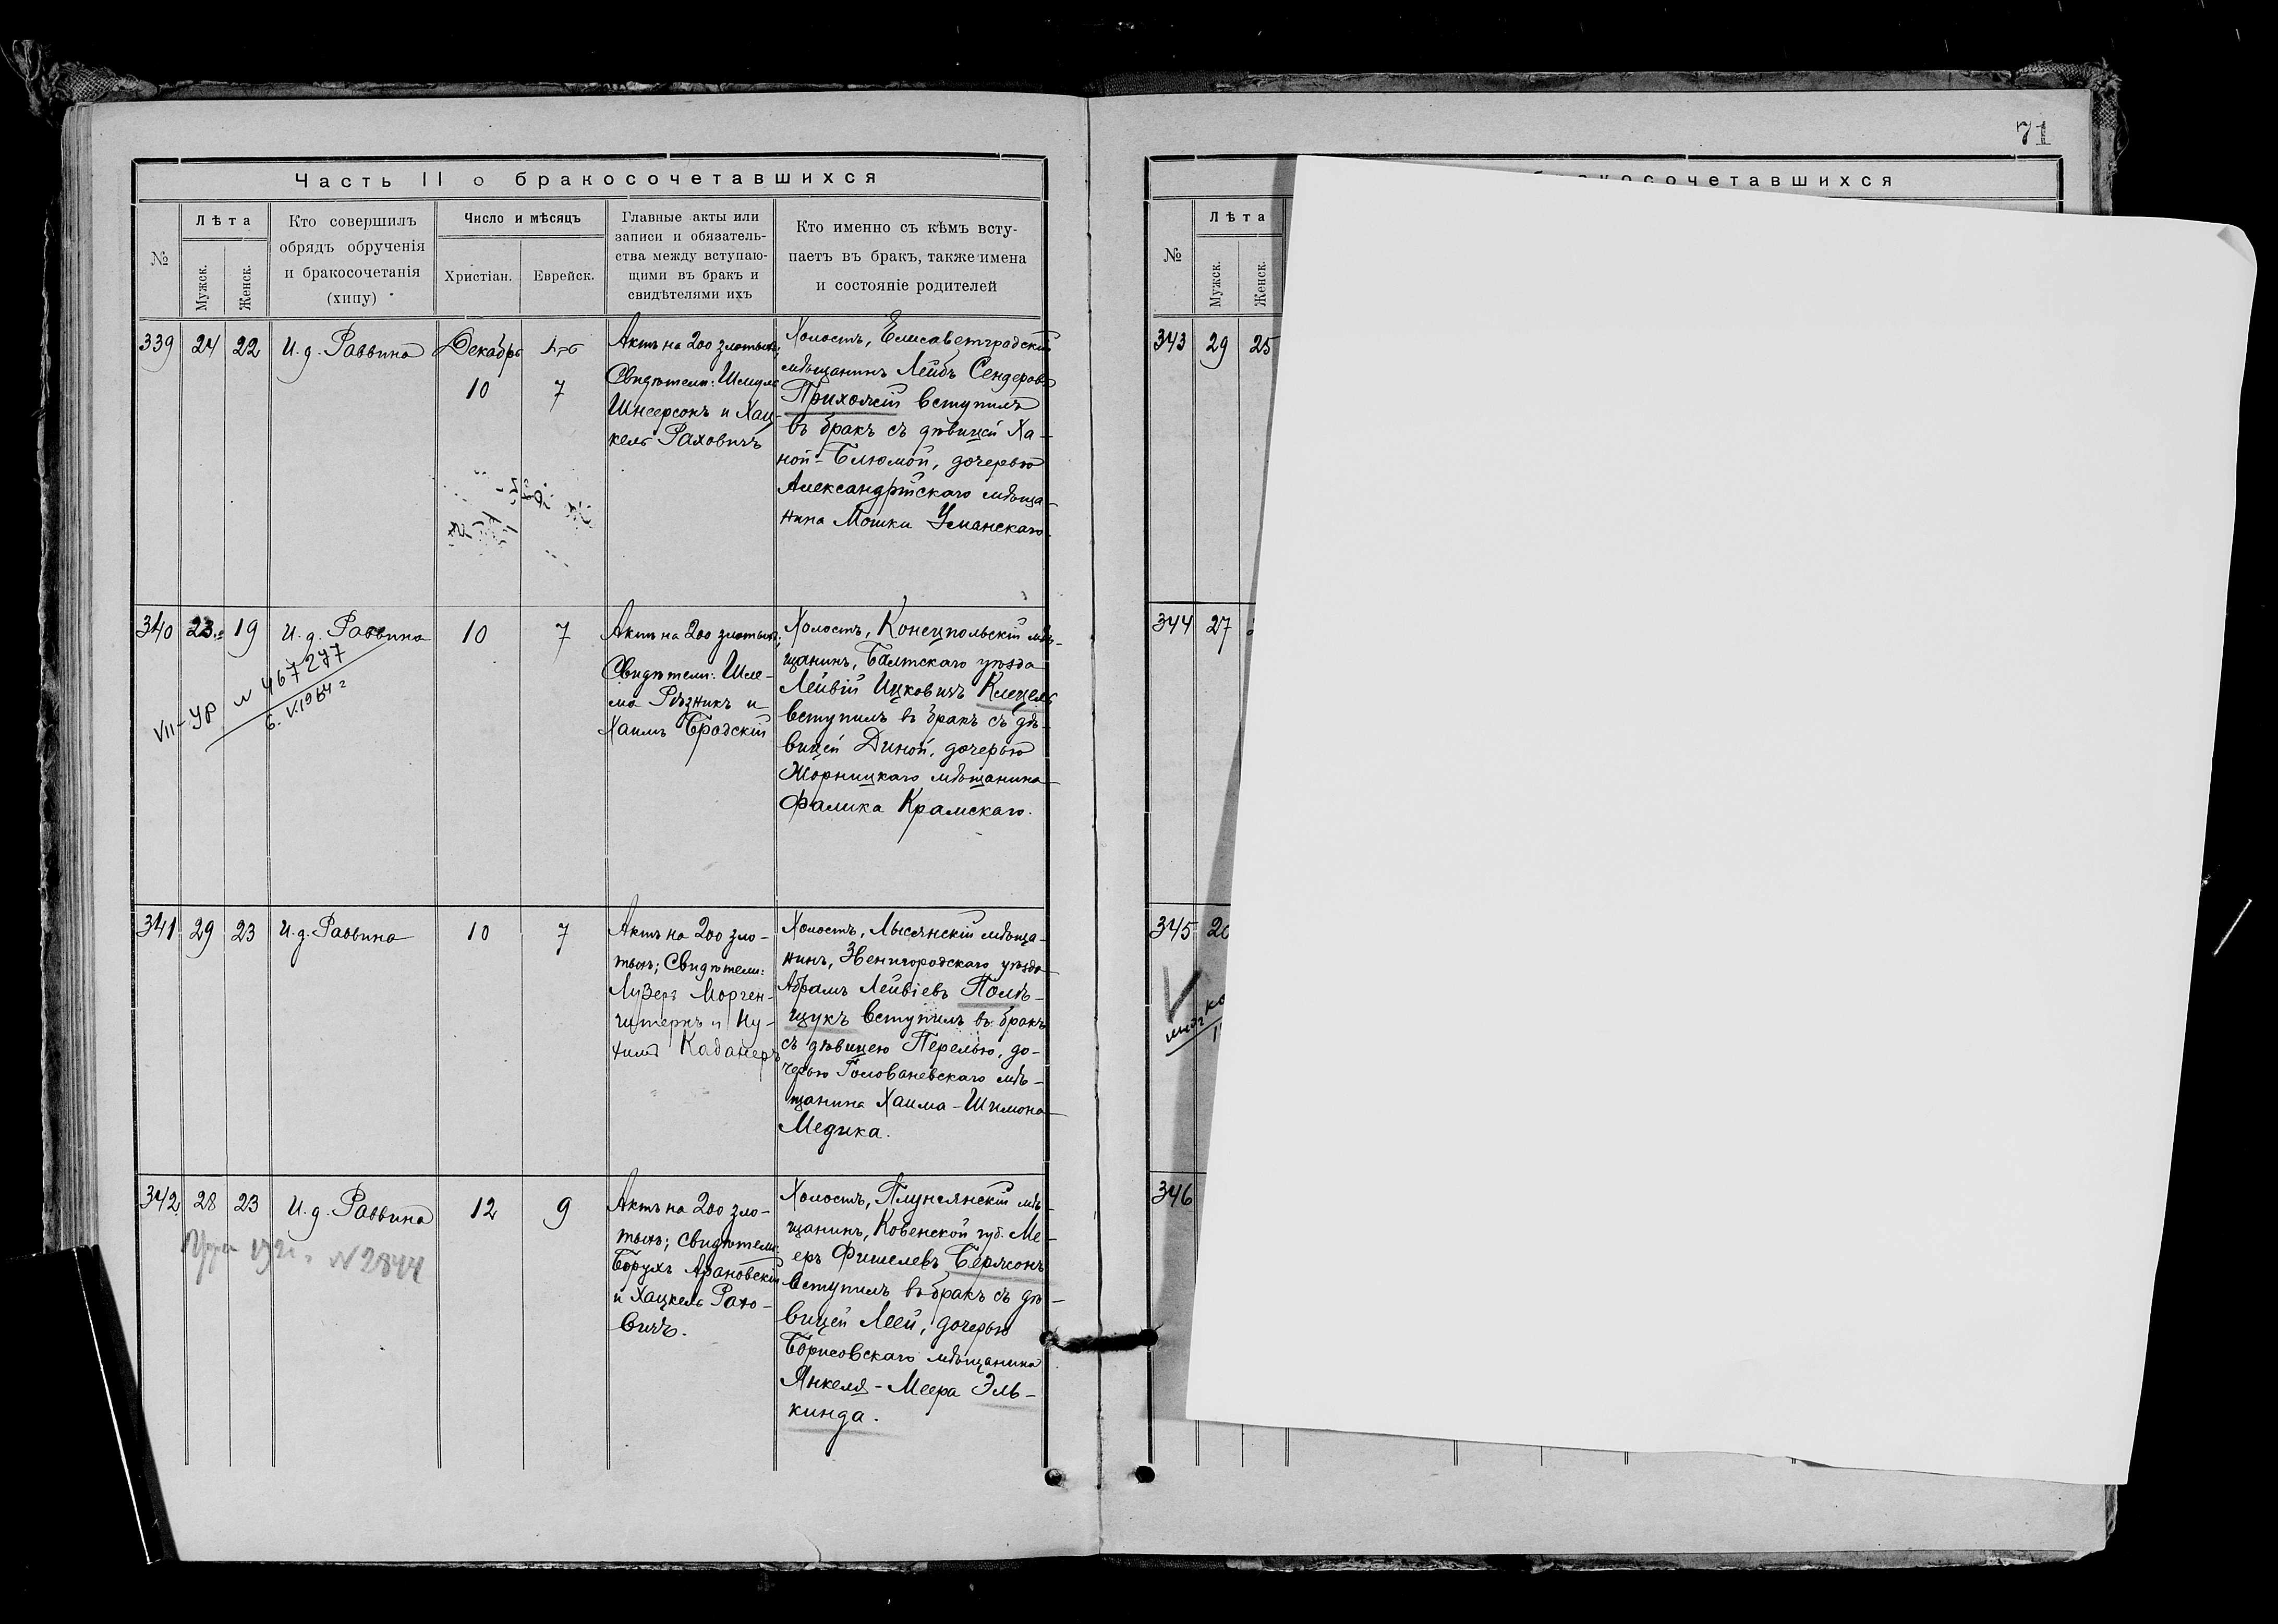 71
Часть II о бракосочетавшихся
№
Лѣта
Мужск.
Женск.
Кто совершилъ
обрядъ обрученія
и бракосочетанія
(хипу)
Число и мѣсяцъ
Христіан.
Еврейск.
Главные акты или
записи и обязатель-
ства между вступаю-
щими въ бракъ и
свидѣтелями ихъ
Кто именно съ кѣмъ всту-
паетъ въ бракъ, также имена
и состояніе родителей
339
24
22
И. д. Раввина
Декабрь
10
7
Актъ на 200 злотыхъ;
Свидѣтели: Шмуль
Шнеерсонъ и Хац-
кель Раховичъ
Холостъ, Елисаветградскій
мѣщанинъ Лейбъ Сендеровъ
Прихожій вступилъ
въ бракъ съ дѣвицей Ха-
ной-Блюмой, дочерью
Александрійскаго мѣща-
нина Мошки Уманскаго.
340
23
19
И. д. Раввина
10
7
VII-УР № 467277
6.V.1964 г
Актъ на 200 злотыхъ;
Свидѣтели: Шле-
ма Рѣзникъ и
Хаимъ Бродскій
Холостъ, Конецпольскій мѣ-
щанинъ, Балтскаго уѣзда
Лейвій Ицковичъ Клецель
вступилъ въ бракъ съ дѣ-
вицей Диной, дочерью
Жорницкаго мѣщанина
Фалика Крамскаго.
341
29
23
И. д. Раввина
10
7
Актъ на 200 зло-
тыхъ; Свидѣтели:
Лузеръ Морген-
штернъ и Ну-
химъ Каданеръ
Холостъ, Лысянскій мѣща-
нинъ, Звенигородскаго уѣзда
Абрамъ Лейвіевъ Полѣ-
щукъ вступилъ въ бракъ
съ дѣвицею Перелью, до-
черью Голованевскаго мѣ-
щанина Хаима-Шимона
Медика.
342
28
23
И. д. Раввина
12
9
№ 2844
Актъ на 200 зло-
тыхъ; свидѣтели:
Борухъ Арановскій
и Хацкель Рахо-
вичъ.
Холостъ, Плунгянскій мѣ-
щанинъ, Ковенской губ. Ме-
еръ Фишелевъ Берзонъ
вступилъ въ бракъ съ дѣ-
вицей Леей, дочерью
Борисовскаго мѣщанина
Янкеля-Меера Эль-
кинда.
бракосочетавшихся
№
Лѣта
Мужск.
Женск.
343
29
25
344
27
345
346